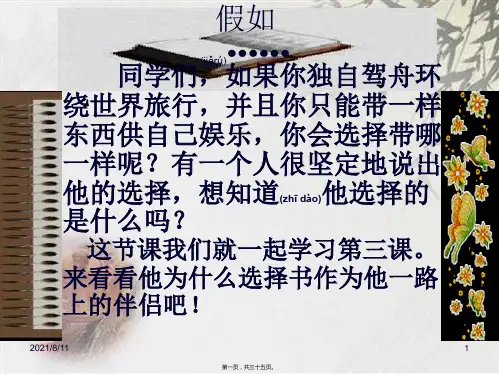 假如
......
(jiǎrú)
同学们，如果你独自驾舟环
绕世界旅行，并且你只能带一样
东西供自己娱乐，你会选择带哪
一样呢？有一个人很坚定地说出
他的选择，想知道(zhī dào)他选择的
是什么吗？
这节课我们就一起学习第三课。
来看看他为什么选择书作为他一路
上的伴侣吧！
2021/8/11
1
第一页，共三十五页。